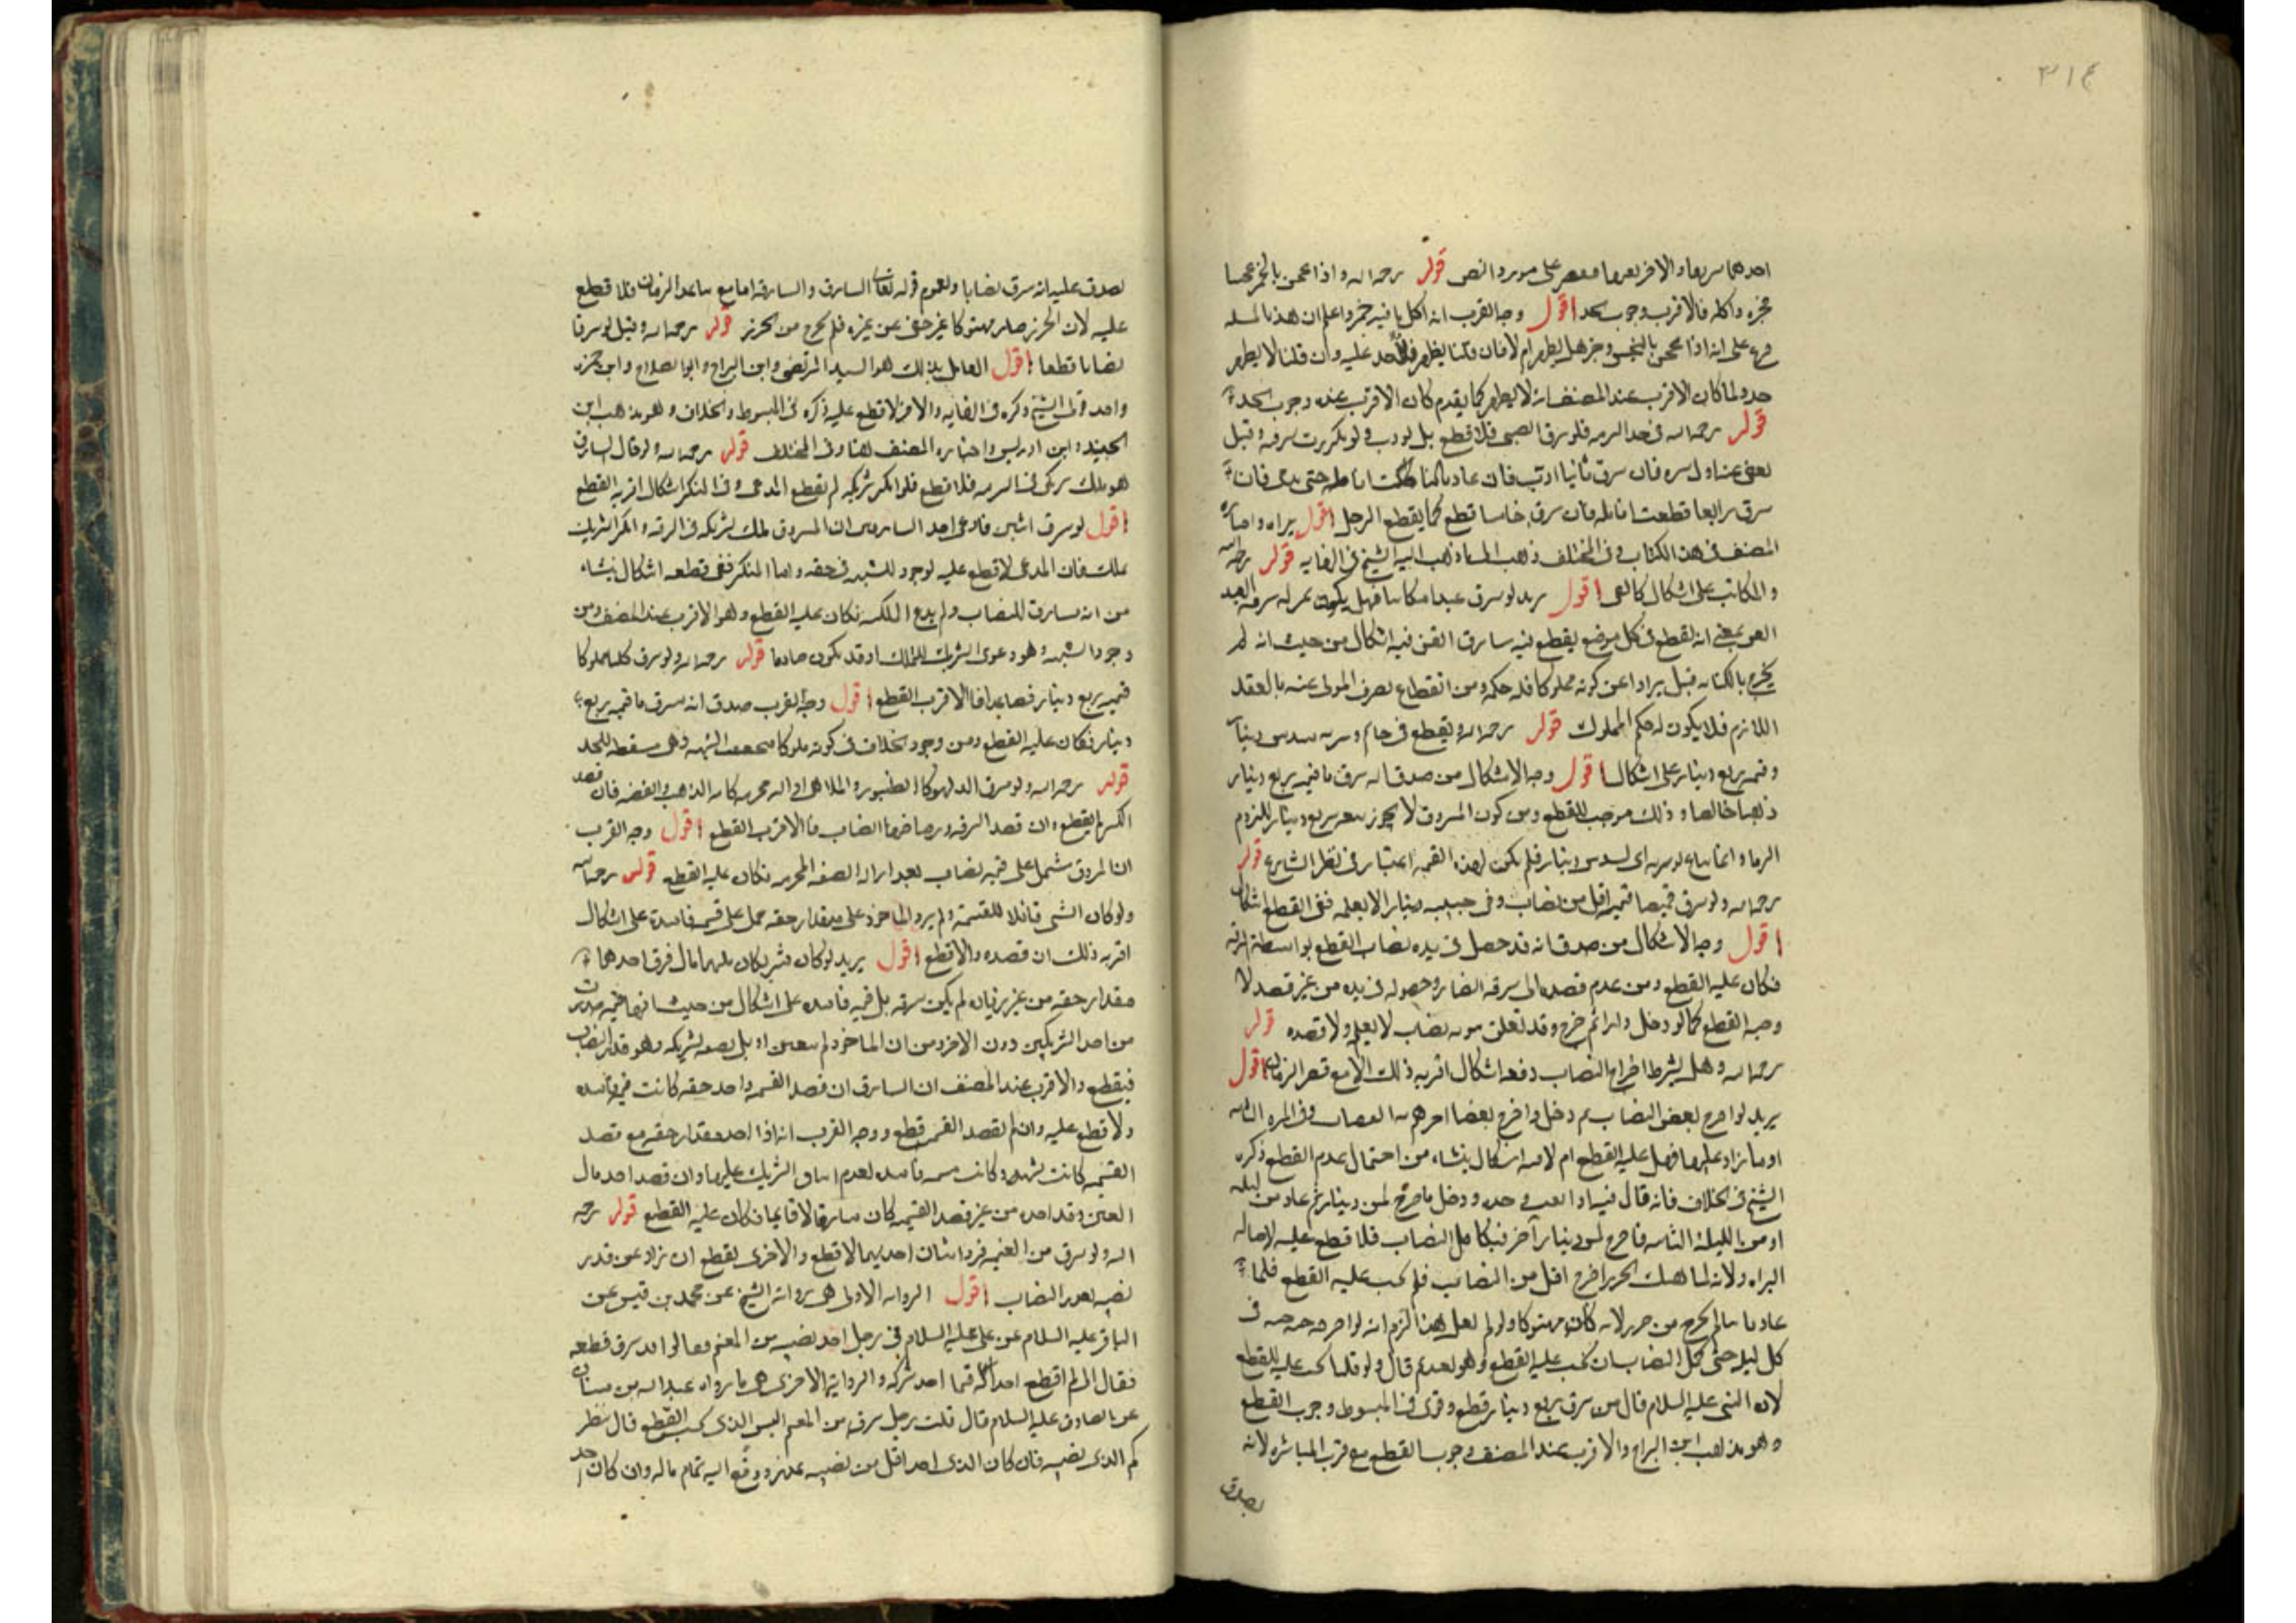 ٣١٤
احدهما بشربها والاخر بغيرها فيقتصر على مورد النص قوله رحمه الله واذا عجن بالخمر عجينا
فخبزه واكله فالاقرب وجوب الحد اقول وجه القرب انه اكل ما فيه خمر واعلم ان هذه المسئله
فرع على انه اذا عجن بالنجس وخبز هل يطهر ام لا فان قلنا يطهر فلا حد عليه وان قلنا لا يطهر
حد ولما كان الاقرب عند المصنف انه لا يطهر كما تقدم كان الاقرب عنده وجوب الحد
قوله رحمه الله فى حد السرقه فلو سرق الصبى فلا قطع بل يؤدب ولو تكررت سرقته وقيل
يعفى عنه اول مره فان سرق ثانيا ادب فان عاد ثالثا حكت انامله حتى تدمى فان
سرق رابعا قطعت انامله فان سرق خامسا قطع كما يقطع الرجل اقول
المصنف فى هذا الكتاب وفى المختلف ذهب الى ما ذهب اليه الشيخ فى النهايه قوله رحمه الله
والمكاتب على اشكال كالقن اقول يريد لو سرق عبدا مكاتبا فهل يكون بمنزله سرقه العبد
القن بمعنى انه يقطع فى كل موضع يقطع فيه سارق القن فيه اشكال من حيث انه لم
يخرج بالكتابه قبل عن كونه مملوكا فله حكمه ومن انقطاع تصرف المولى عنه بالعقد
اللازم فلا يكون له حكم المملوك قوله رحمه الله ويقطع فى خاتم وزنه سدس دينار
وقيمته ربع دينار على اشكال اقول وجه الاشكال من صدق انه سرق ما قيمته ربع دينار
ذهبا خالصا وذلك موجب للقطع ومن كون المسروق لا يجوز بيعه بربع دينار للزوم
الربا وانما يباع بوزنه اى بسدس دينار فلم يكن لهذه القيمه اعتبار فى نظر الشارع قوله
رحمه الله ولو سرق قميصا قيمته اقل من نصاب وفى جيبه دينار لا يعلمه ففى القطع اشكال
اقول وجه الاشكال من صدق انه قد حصل فى يده نصاب القطع بواسطه السرقه
فكان عليه القطع ومن عدم قصده الى سرقه النصاب وحصوله فى يده من غير قصد لا
وجه للقطع كما لو دخل دارا ثم خرج وقد تعلق بثوبه نصاب لا يعلمه ولا قصده قوله
رحمه الله وهل يشترط اخراج النصاب دفعه اشكال اقربه ذلك الا مع قصر الزمان اقول
يريد لو اخرج بعض النصاب ثم دخل واخرج بعضا اخر وفى المره الثانيه
او ما زاد عليها فهل عليه القطع ام لا فيه اشكال ينشاء من احتمال عدم القطع ذكره
الشيخ فى الخلاف فانه قال فيه اذا نقب وحده ودخل فاخرج ثمن دينار ثم عاد من ليلته
او من الليلة الثانيه فاخرج ثمن دينار آخر فتكامل النصاب فلا قطع عليه لاصاله
البراه ولانه لما هتك الحرز اخرج اقل من النصاب فلم يجب عليه القطع فلما
عاد ثانيا لم يخرج من حرز لانه كان مهتوكا ولو لم نقل هذا للزم انه لو اخرجه حبه حبه فى
كل ليله حتى كمل النصاب ان يجب عليه القطع وهو بعيد ثم قال ولو قلنا يجب عليه القطع
لان النبى عليه السلام قال من سرق ربع دينار قطع وقوى فى المبسوط وجوب القطع
وهو مذهب ابن البراج والاقرب عند المصنف وجوب القطع مع قرب المباشره لانه
يصدق
يصدق عليه انه سرق نصابا ولعموم قوله تعالى السارق والسارقه اما مع تباعد الزمان فلا قطع
عليه لان الحرز صار مهتوكا غير من غيره فلم يخرج من الحرز قوله رحمه الله وقيل لو سرقا
نصابا قطعا اقول القايل بذلك هو السيد المرتضى وابن البراج وابو الصلاح وابن حمزه
واحد قولى الشيخ ذكره فى النهايه والاخر لا قطع عليه ذكره فى المبسوط والخلاف وهو مذهب ابن
الجنيد وابن ادريس واختاره المصنف هنا وفى المختلف قوله رحمه الله ولو قال السارق
هو ملك شريكى فى السرقه فلا قطع فلو انكر شريكه لم يقطع المدعى وفى المنكر اشكال اقربه القطع
اقول لو سرق اثنين فادعى احد السارقين ان المسروق ملك شريكه فى السرقه وانكر الشريك
ملك فان المدعى لا قطع عليه لوجود الشبهه فى حقه واما المنكر ففى قطعه اشكال ينشاء
من انه سارق للنصاب ولم يدع الملكيه فكان عليه القطع وهو الاقرب عند المصنف ومن
وجود الشبهه وهو دعوى الشريك للملك اذ قد يكون صادقا قوله رحمه الله ولو سرق كلبا مملوكا
قيمته ربع دينار فصاعدا فالاقرب القطع اقول وجه القرب صدق انه سرق ما قيمته ربع
دينار فكان عليه القطع ومن وجود الخلاف فى كونه مملوكا فتحققت الشبهه وهى مسقطه للحد
قوله رحمه الله ولو سرق آله اللهو كالطنبور والملاهى او آله محرمه كآنيه الذهب والفضه فان قصد
الكسر لم يقطع وان قصد السرقه ورضاضها نصاب فالاقرب القطع اقول وجه القرب
ان المسروق مشتمل على قيمه نصاب بعد ازاله الصفه المحرمه فكان عليه القطع قوله رحمه الله
ولو كان الشى قابلا للقسمة ولم يزد الماخوذ على مقدار حقه حمل على قسمه فاسدة على اشكال
اقربه ذلك ان قصده والا قطع اقول يريد لو كان شريكان بينهما مال فسرق احدهما
مقدار حقه من غير زياده لم يكن سرقه بل قسمه فاسده على اشكال من حيث انها قسمه صدرت
من احد الشريكين دون الاخر ومن ان الماخوذ لم يتعين له بل نصفه لشريكه وهو قدر النصاب
فيقطع والاقرب عند المصنف ان السارق ان قصد القسمه واخذ حقه كانت قسمه فاسده
ولا قطع عليه وان لم يقصد القسمه قطع ووجه القرب انه اذا اخذ مقدار حقه مع قصد
القسمه كانت شبهه وكانت قسمه فاسده لعدم اتفاق الشريك عليها وان قصد اخذ مال
الغير وقد اخذه من غير قصد القسمه كان سارقا لا قاسما فكان عليه القطع قوله رحمه
الله ولو سرق من الغنيمه فروايتان احديهما لا قطع والاخرى يقطع ان زاد عن قدر
نصيبه بقدر النصاب اقول الروايه الاولى هى روايه الشيخ عن محمد بن قيس عن
الباقر عليه السلام عن على عليه السلام فى رجل اخذ بيضه من المغنم فقالوا قد سرق فاقطعه
فقال انى لم اقطع احدا له فيما اخذ شركه والرواية الاخرى هى ما رواه عبد الله بن سنان
عن الصادق عليه السلام قال قلت رجل سرق من المغنم ايش الذى يجب القطع قال ينظر
كم الذى نصيبه فان كان الذى اخذ اقل من نصيبه عزر ودفع اليه تمام ماله وان كان اخذ